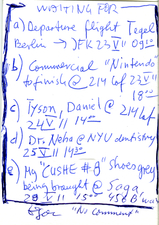 WAITING FOR
a) Departure flight Tegel
Berlin → JFK 23 V 11 09⁰⁰
b) Commercial "Nintendo"
to finish @ 214 lof 23 V 11
18⁰⁰
c) Tyson, Daniel @ 214 lof
24 V 11 14⁰⁰
d) Dr. Neho @ NYU dentistry
25 V 11 14³⁰
e) My "CUSHE #8" shoes grey
being brought @ Saga
28 V 11 15⁰⁰ 456 B
"No comment"